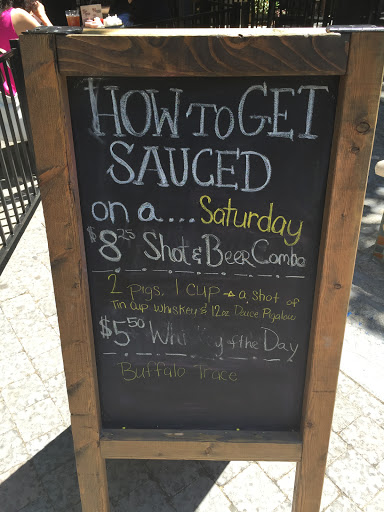 HOW TO GET
SAUCED
on a.... Saturday
$8.25 Shot & Beer Combo
2 Pigs, 1 cup → a shot of
Tin Cup whiskey & 12oz Deuce Pigalow
$5.50 Whisky of the Day
Buffalo Trace